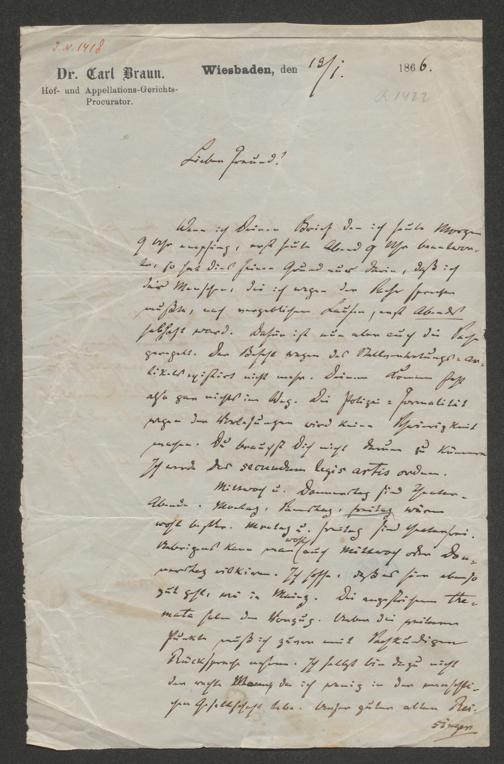 J. N. 1418
Dr. Carl Braun.
Hof- und Appellations-Gerichts-
Procurator.
Wiesbaden, den 13/I. 1866.
Q 1422
Lieber Freund!
Wenn ich Deinen Brief den ich heute Morgen
9 Uhr empfing, erst heute Abend 9 Uhr beantwor-
te, so hat dies seinen Grund nur darin, daß ich
die Menschen, die ich wegen der Sache sprechen
mußte, nach vergeblichem Laufen, erst Abends
habhaft ward. Dafür ist nun aber auch die Sache
geregelt. Der Beschl wegen des
existirt nicht mehr. Deinem Kommen steht
also gar nichts im Weg. Die Polizei-Formalität
wegen der Vorlesungen wird keine Schwierigkeit
machen. Du brauchst Dich nicht darum zu kümmern
Ich werde das secundum legis artis ordnen.
Mittwoch u. Donnerstag sind Theater-
Abende. Montag, Samstag, Freitag wären
wohl besser. Montag u. Freitag sind theaterfrei.
Uebrigens kann man wohl auch Mittwoch oder Don-
nerstag riskiren. Ich hoffe, daß es hier ebenso
gut geht, wie in Mainz. Die angestrichenen The-
mata haben den Vorzug. Ueber die weiteren
Punkte muß ich zuvor mit Sachkundigen
Rücksprache nehmen. Ich selbst bin dazu nicht
der rechte Mann, da ich wenig in der menschli-
chen Gesellschaft lebe. Unser guter alter Rei-
singer